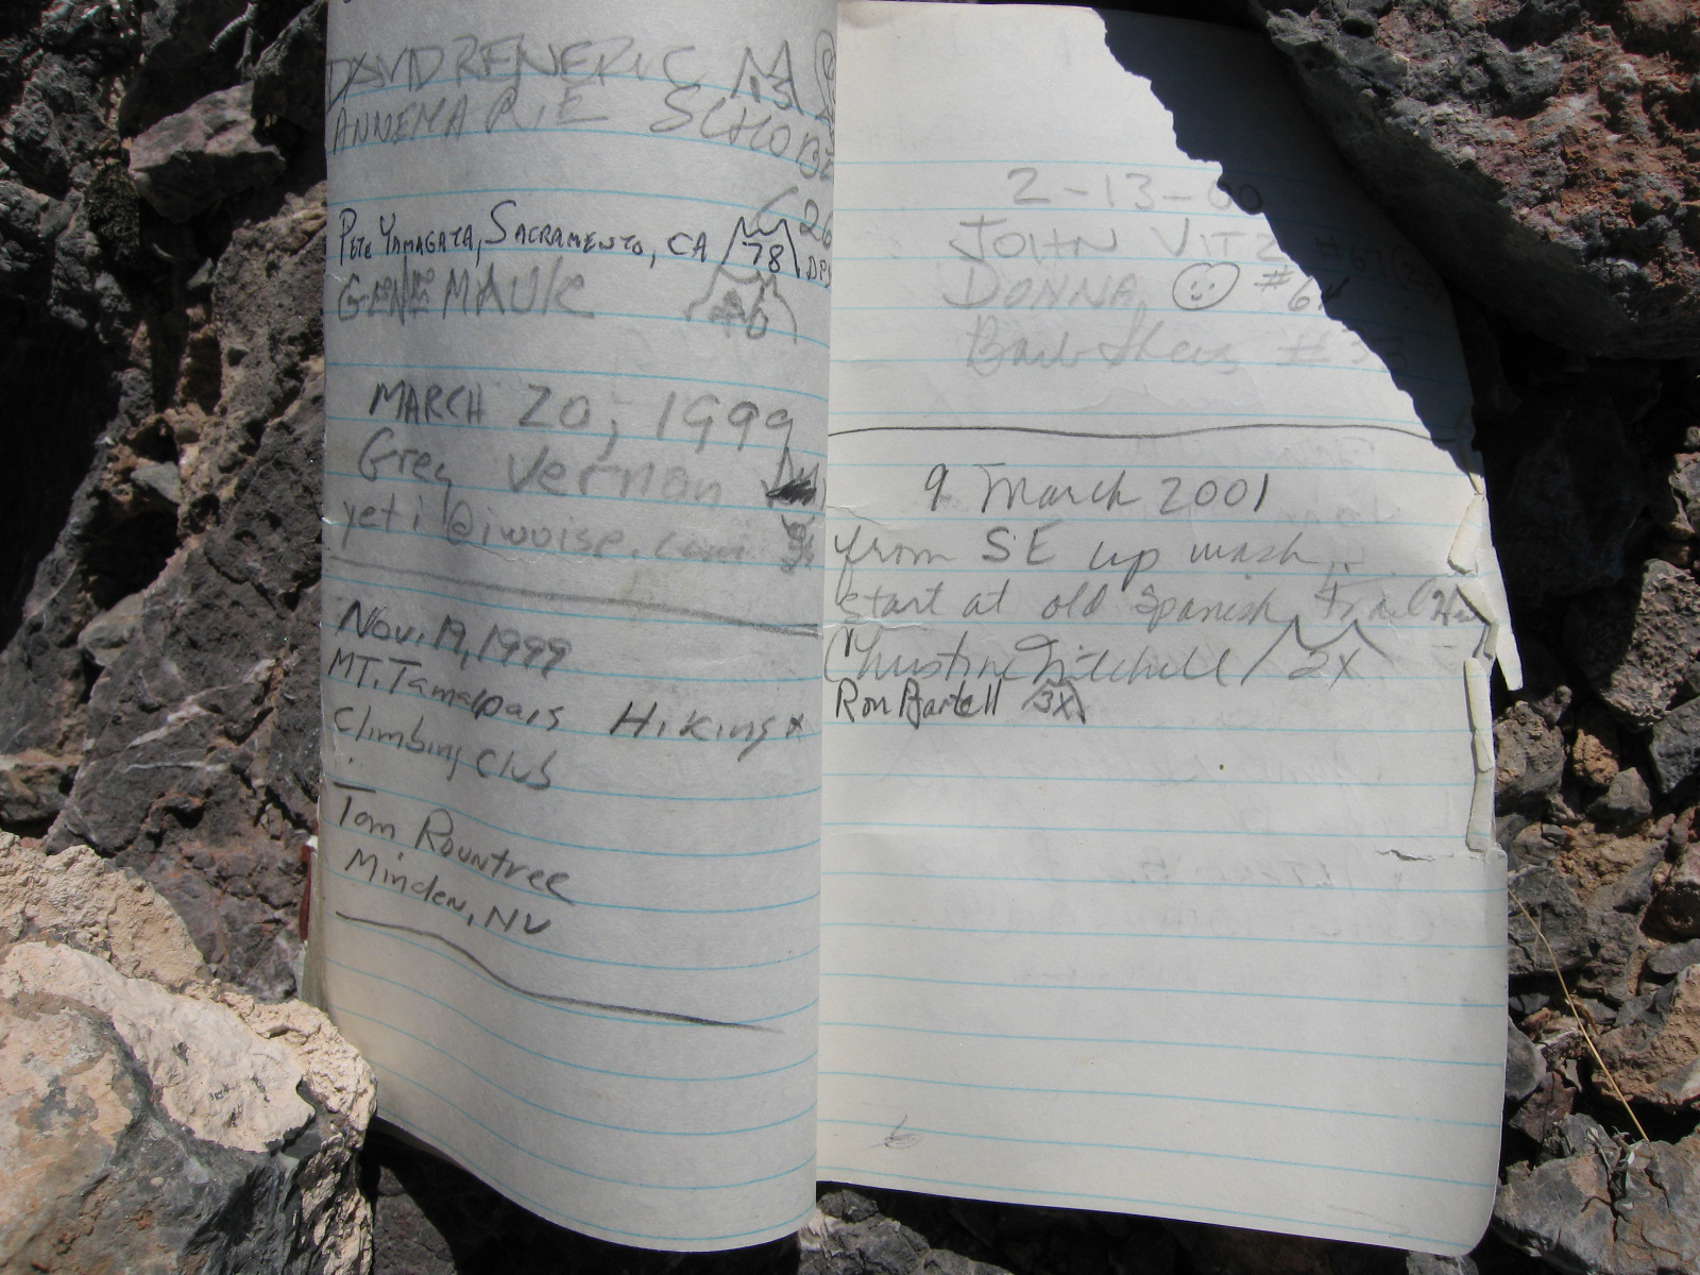 ANNEMARIE
26
PETE YAMAGATA, SACRAMENTO, CA 78 DPS
GENE MAUK
MARCH 20, 1999
Greg Vernon
Nov. 19, 1999
MT. Tamalpais Hiking &
Climbing Club
Tom Rountree
Minden, NV
2-13-00
JOHN VITZ #67
DONNA #64
Barb
9 March 2001
from SE up wash
start at old Spanish Trail
Christine Mitchell 2X
Ron Bartell 3X
6